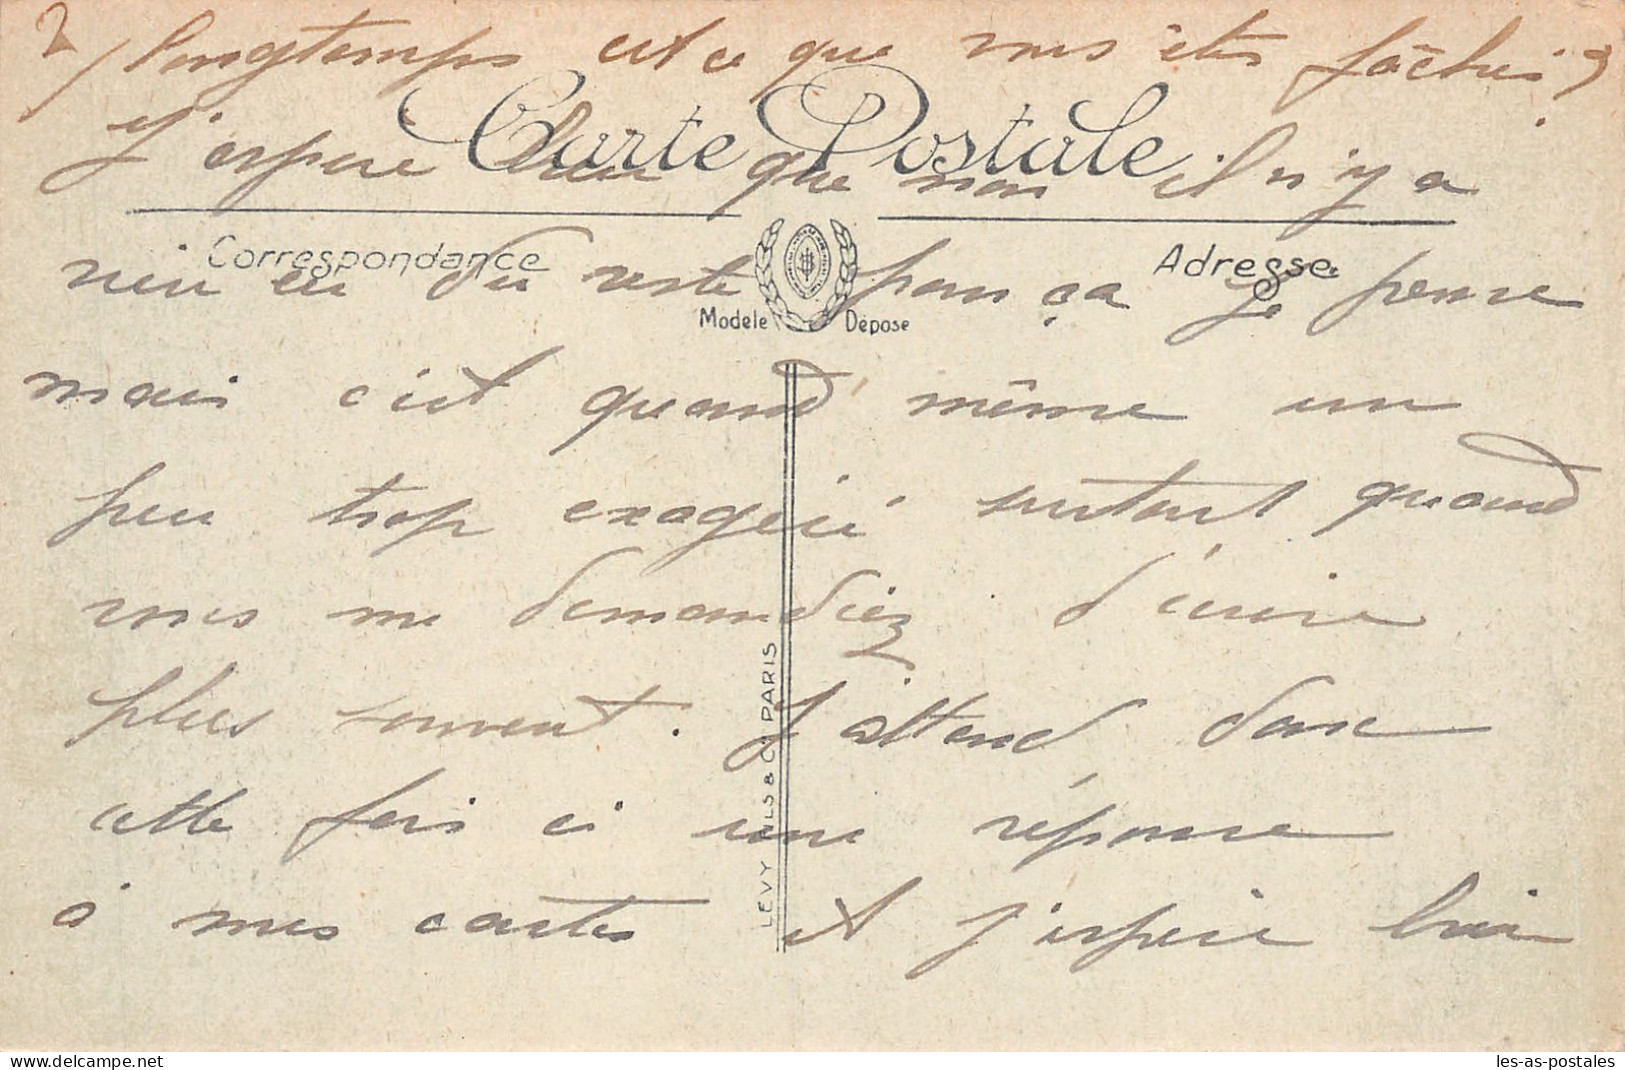 2
longtemps est ce que vous êtes fâchés ?
Carte Postale
J'espère bien que non il n'y a
Correspondance
Adresse
rien eu du reste pour ça je pense
Modèle Déposé
mais c'est quand même un
peu trop exagéré surtout quand
vous me demandiez d'écrire
plus souvent. J'attend donc
cette fois ci une réponse
à mes cartes et j'espère bien
LEVY FILS & Cie PARIS
delcampe.net
les-as-postales